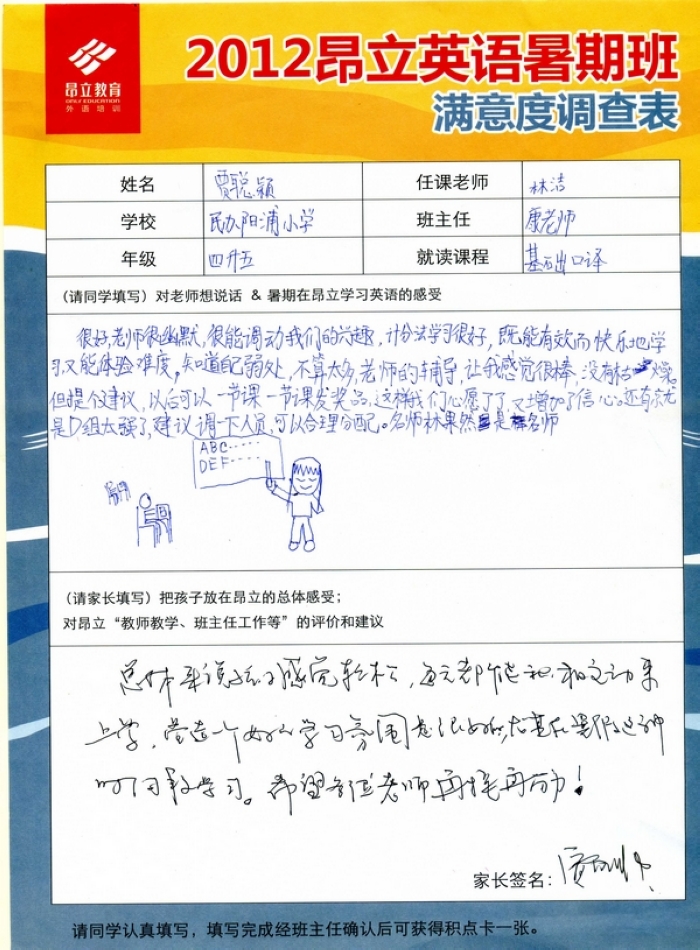 昂立教育
ONLY EDUCATION
外语培训
2012昂立英语暑期班
满意度调查表
姓名 贾聪颖 任课老师 林洁
学校 民办阳浦小学 班主任 康老师
年级 四升五 就读课程 基础口译
(请同学填写)对老师想说话 & 暑期在昂立学习英语的感受
很好,老师很幽默,很能调动我们的兴趣,计分法学习很好,既能有效而快乐地学
习,又能体验难度,知道自己弱处,不算太多,老师的辅导,让我感觉很棒,没有枯燥。
但提个建议,以后可以一节课一节课发奖品,这样我们心愿了了,又增加了信心。还有就
是D组太强了,建议调一下人员,可以合理分配。名师林果然是名师
ABC-----
DEF-----
(请家长填写)把孩子放在昂立的总体感受;
对昂立“教师教学、班主任工作等”的评价和建议
总体来说孩子感觉轻松,每天都能积极主动来
上学,营造一个好的学习氛围是很好的,尤其在暑假这种
时间段学习。希望各位老师再接再励!
家长签名:
请同学认真填写,填写完成经班主任确认后可获得积点卡一张。